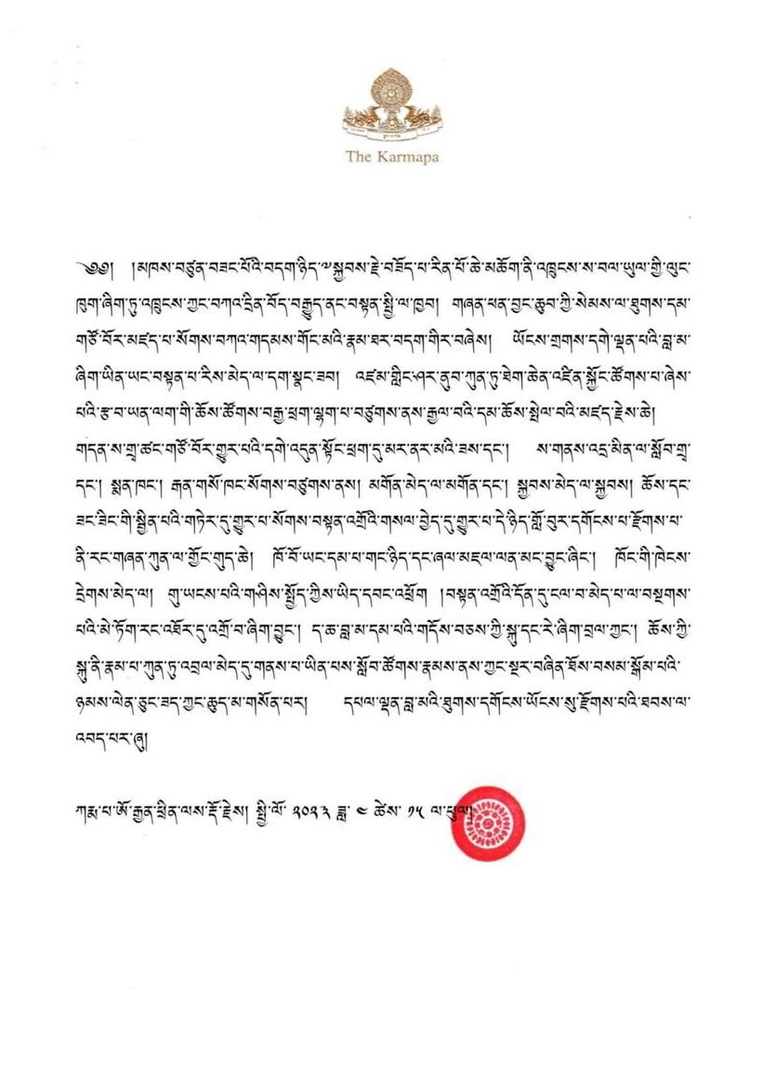 The Karmapa
༄༅།། །མཁས་བཙུན་བཟང་པོའི་བདག་ཉིད་༧སྐྱབས་རྗེ་བཟོད་པ་རིན་པོ་ཆེ་མཆོག་ནི་འཁྲུངས་ས་བལ་ཡུལ་གྱི་ལུང་
ཁུག་ཞིག་ཏུ་འཁྲུངས་ཀྱང་བཀའ་དྲིན་བོད་བརྒྱུད་ནང་བསྟན་སྤྱི་ལ་ཁྱབ། གཞན་ཕན་བྱང་ཆུབ་ཀྱི་སེམས་ལ་ཐུགས་དམ་
གཙོ་བོར་མཛད་པ་སོགས་བཀའ་གདམས་གོང་མའི་རྣམ་ཐར་བདག་གིར་བཞེས། ཡོངས་གྲགས་དགེ་ལྡན་པའི་བླ་མ་
ཞིག་ཡིན་ཡང་བསྟན་པ་རིས་མེད་ལ་དག་སྣང་ཟབ། འཛམ་གླིང་ཤར་ནུབ་ཀུན་ཏུ་ཐེག་ཆེན་འཛིན་སྐྱོང་ཚོགས་པ་ཞེས་
པའི་རྩ་བ་ཡན་ལག་གི་ཆོས་ཚོགས་བརྒྱ་ཕྲག་ལྷག་པ་བཙུགས་ནས་རྒྱལ་བའི་དམ་ཆོས་སྤེལ་བའི་མཛད་རྗེས་ཆེ།
གདན་ས་གྲྭ་ཚང་གཙོ་བོར་གྱུར་པའི་དགེ་འདུན་སྟོང་ཕྲག་དུ་མར་ནར་མའི་ཟས་དང་། ས་གནས་འདྲ་མིན་ལ་སློབ་གྲྭ་
དང་། སྨན་ཁང་། རྒན་གསོ་ཁང་སོགས་བཙུགས་ནས། མགོན་མེད་ལ་མགོན་དང་། སྐྱབས་མེད་ལ་སྐྱབས། ཆོས་དང་
ཟང་ཟིང་གི་སྦྱིན་པའི་གཏེར་དུ་གྱུར་པ་སོགས་བསྟན་འགྲོའི་གསལ་བྱེད་དུ་གྱུར་པ་དེ་ཉིད་གློ་བུར་དགོངས་པ་རྫོགས་པ་
ནི་རང་གཞན་ཀུན་ལ་གྱོང་གུད་ཆེ། ཁོ་བོ་ཡང་དམ་པ་གང་ཉིད་དང་ཞལ་མཇལ་ལན་མང་བྱུང་ཞིང་། ཁོང་གི་ཁེངས་
དྲེགས་མེད་ལ། གུ་ཡངས་པའི་གཤིས་སྤྱོད་ཀྱིས་ཡིད་དབང་འཕྲོག །བསྟན་འགྲོའི་དོན་དུ་ངལ་བ་མེད་པ་ལ་བསྔགས་
པའི་མེ་ཏོག་རང་འཐོར་དུ་འགྲོ་བ་ཞིག་བྱུང་། ད་ཆ་བླ་མ་དམ་པའི་གདོས་བཅས་ཀྱི་སྐུ་དང་རེ་ཞིག་བྲལ་ཀྱང་། ཆོས་ཀྱི་
སྐུ་ནི་རྣམ་པ་ཀུན་ཏུ་འབྲལ་མེད་དུ་གནས་པ་ཡིན་པས་སློབ་ཚོགས་རྣམས་ནས་ཀྱང་སྔར་བཞིན་ཐོས་བསམ་སྒོམ་པའི་
ཉམས་ལེན་ཅུང་ཟད་ཀྱང་ཆུད་མ་གསོན་པར། དཔལ་ལྡན་བླ་མའི་ཐུགས་དགོངས་ཡོངས་སུ་རྫོགས་པའི་ཐབས་ལ་
འབད་པར་ཞུ།
ཀརྨ་པ་ཨོ་རྒྱན་ཕྲིན་ལས་རྡོ་རྗེས། སྤྱི་ལོ་ ༢༠༢༣ ཟླ་ ༤ ཚེས་ ༡༥ ལ་ཕུལ།